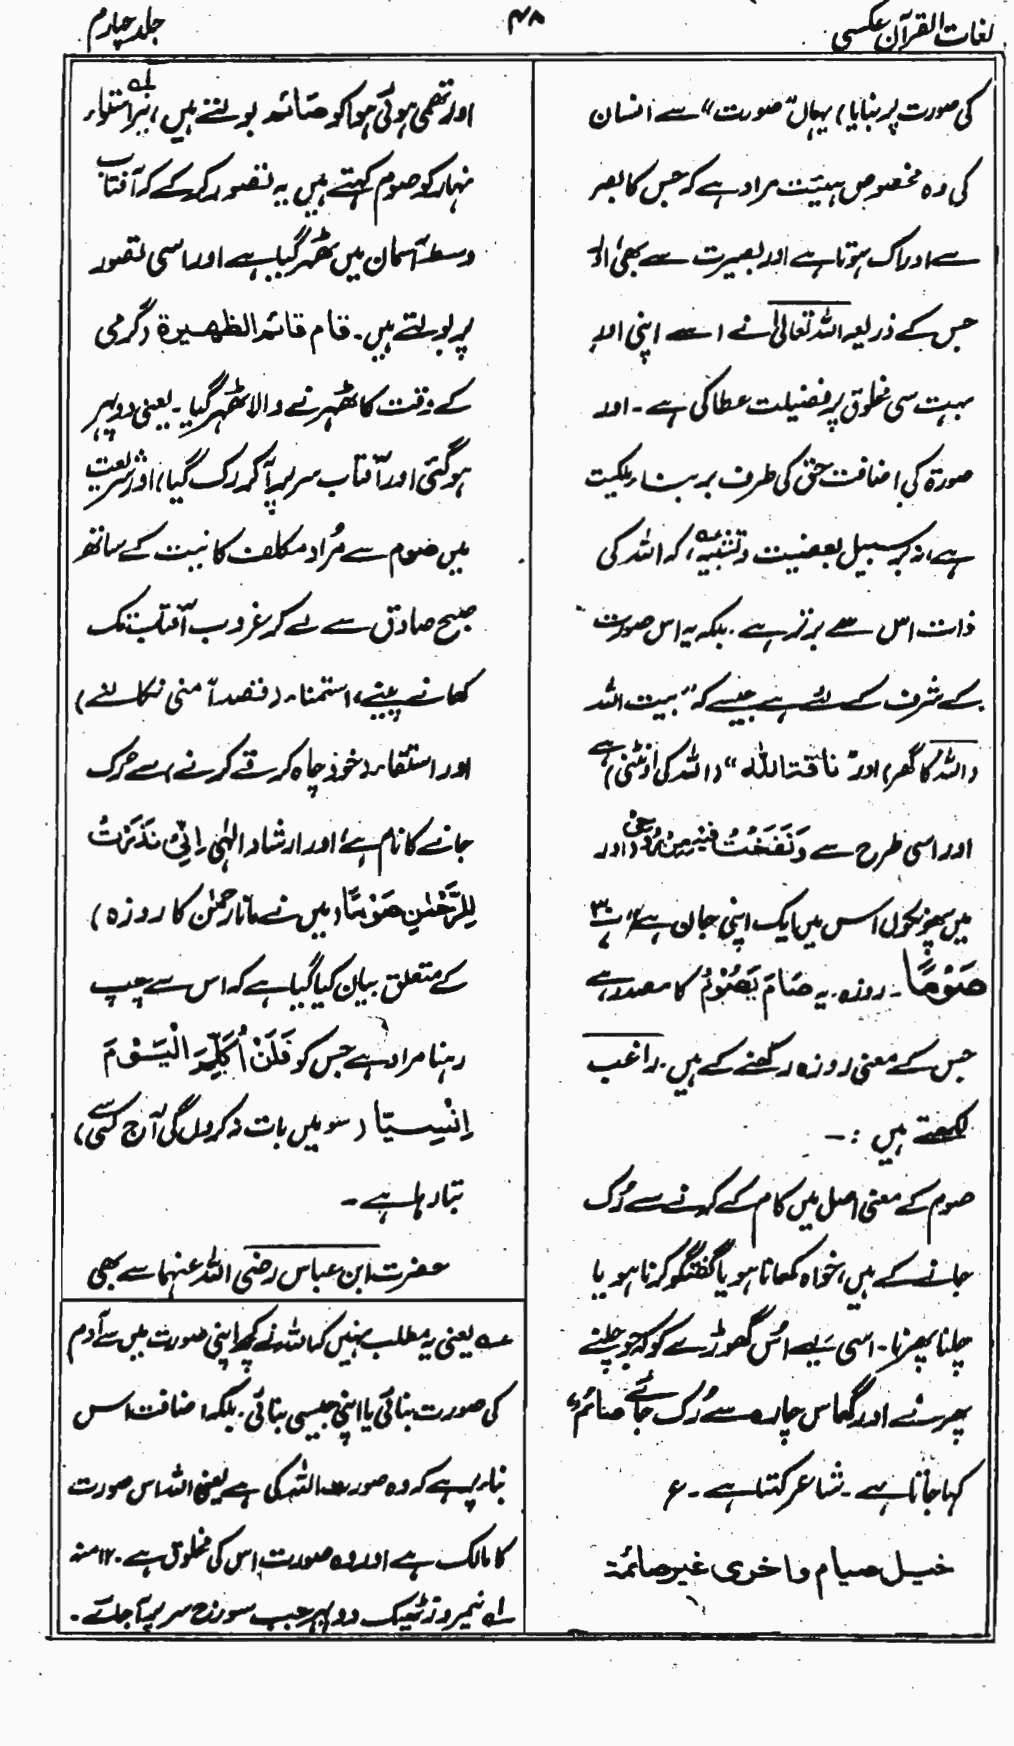 لغات القرآن عکسی
۴۸
جلد چہارم
کی صورت پر بنایا) یہاں "صورت" سے انسان
کی وہ مخصوص ہیئت مراد ہے کہ جس کا بصر
سے ادراک ہوتا ہے اور بصیرت سے بھی اور
جس کے ذریعہ اللہ تعالیٰ نے اسے اپنی اور
بہت سی مخلوق پر فضیلت عطا کی ہے۔ اور
صورۃ کی اضافت حق کی طرف بر بناء ملکیت
ہے، نہ کہ بسبیل بعضیت و تشبیہ عہ، کہ اللہ کی
ذات اس سے برتر ہے۔ بلکہ یہ اس صورت
کے شرف کے لئے ہے جیسے کہ "بیت اللہ
(اللہ کا گھر) اور ناقۃ اللہ" (اللہ کی اونٹنی) ہے
اور اسی طرح سے وَنَفَخْتُ فِیْہِ مِنْ رُّوْحِیْ (اور
میں پھونکوں اس میں ایک اپنی جان ہے) ہے
صَوْمًا۔ روزہ۔ یہ صَامَ یَصُوْمُ کا مصدر ہے
جس کے معنی روزہ رکھنے کے ہیں۔ راغب
لکھتے ہیں :۔
صوم کے معنی اصل میں کام کے کرنے سے رُک
جانے کے ہیں، خواہ کھانا ہو یا گفتگو کرنا ہو یا
چلنا پھرنا۔ اسی لیے اُس گھوڑے کو کہ جو چلنے
پھرنے اور گھاس چارہ سے رُک جائے صائم"
کہا جاتا ہے۔ شاعر کہتا ہے۔ ع
خیل صیام واخری غیر صائمۃ
اور تھمی ہوئی ہوا کو صَائمہ بولتے ہیں، نیز استواء
نہار لہ کو صوم کہتے ہیں یہ تصور کر کے کہ آفتاب
وسط آسمان میں ٹھہر گیا ہے اور اسی تصور
پر بولتے ہیں۔ قام قائمہ الظہیرۃ (گرمی
کے وقت کا ٹھہرنے والا ٹھہر گیا۔ یعنی دوپہر
ہو گئی اور آفتاب سر پر آ کر رک گیا) اور شریعت
میں صوم سے مُراد مکلف کا نیت کے ساتھ
صبح صادق سے لے کر غروب آفتاب تک
کھانے پینے، استمناء (قصداً منی نکالنے)
اور استقاء (خود چاہ کر قے کرنے) سے رک
جانے کا نام ہے؛ اور ارشاد الٰہی اِنِّیْ نَذَرْتُ
لِلرَّحْمٰنِ صَوْمًا (میں نے مانا رحمٰن کا روزہ)
کے متعلق بیان کیا گیا ہے کہ اس سے چپ
رہنا مراد ہے جس کو فَلَنْ اُکَلِّمَ الْیَوْمَ
اِنْسِیًّا (سو میں بات نہ کروں گی آج کسی سے)
بتا رہا ہے۔
حضرت ابن عباس رضی اللہ عنہما سے بھی
عہ یعنی یہ مطلب نہیں کہ اللہ نے کچھ اپنی صورت میں سے آدم
کی صورت بنائی یا اپنی جیسی بنائی۔ بلکہ اضافت اس
بناء پر ہے کہ وہ صورت اللہ کی ہے یعنی اللہ اس صورت
کا مالک ہے اور وہ صورت اس کی مخلوق ہے۔ ۱۲ منہ
لہ نیمروز ٹھیک دوپہر جب سورج سر پر آ جائے۔